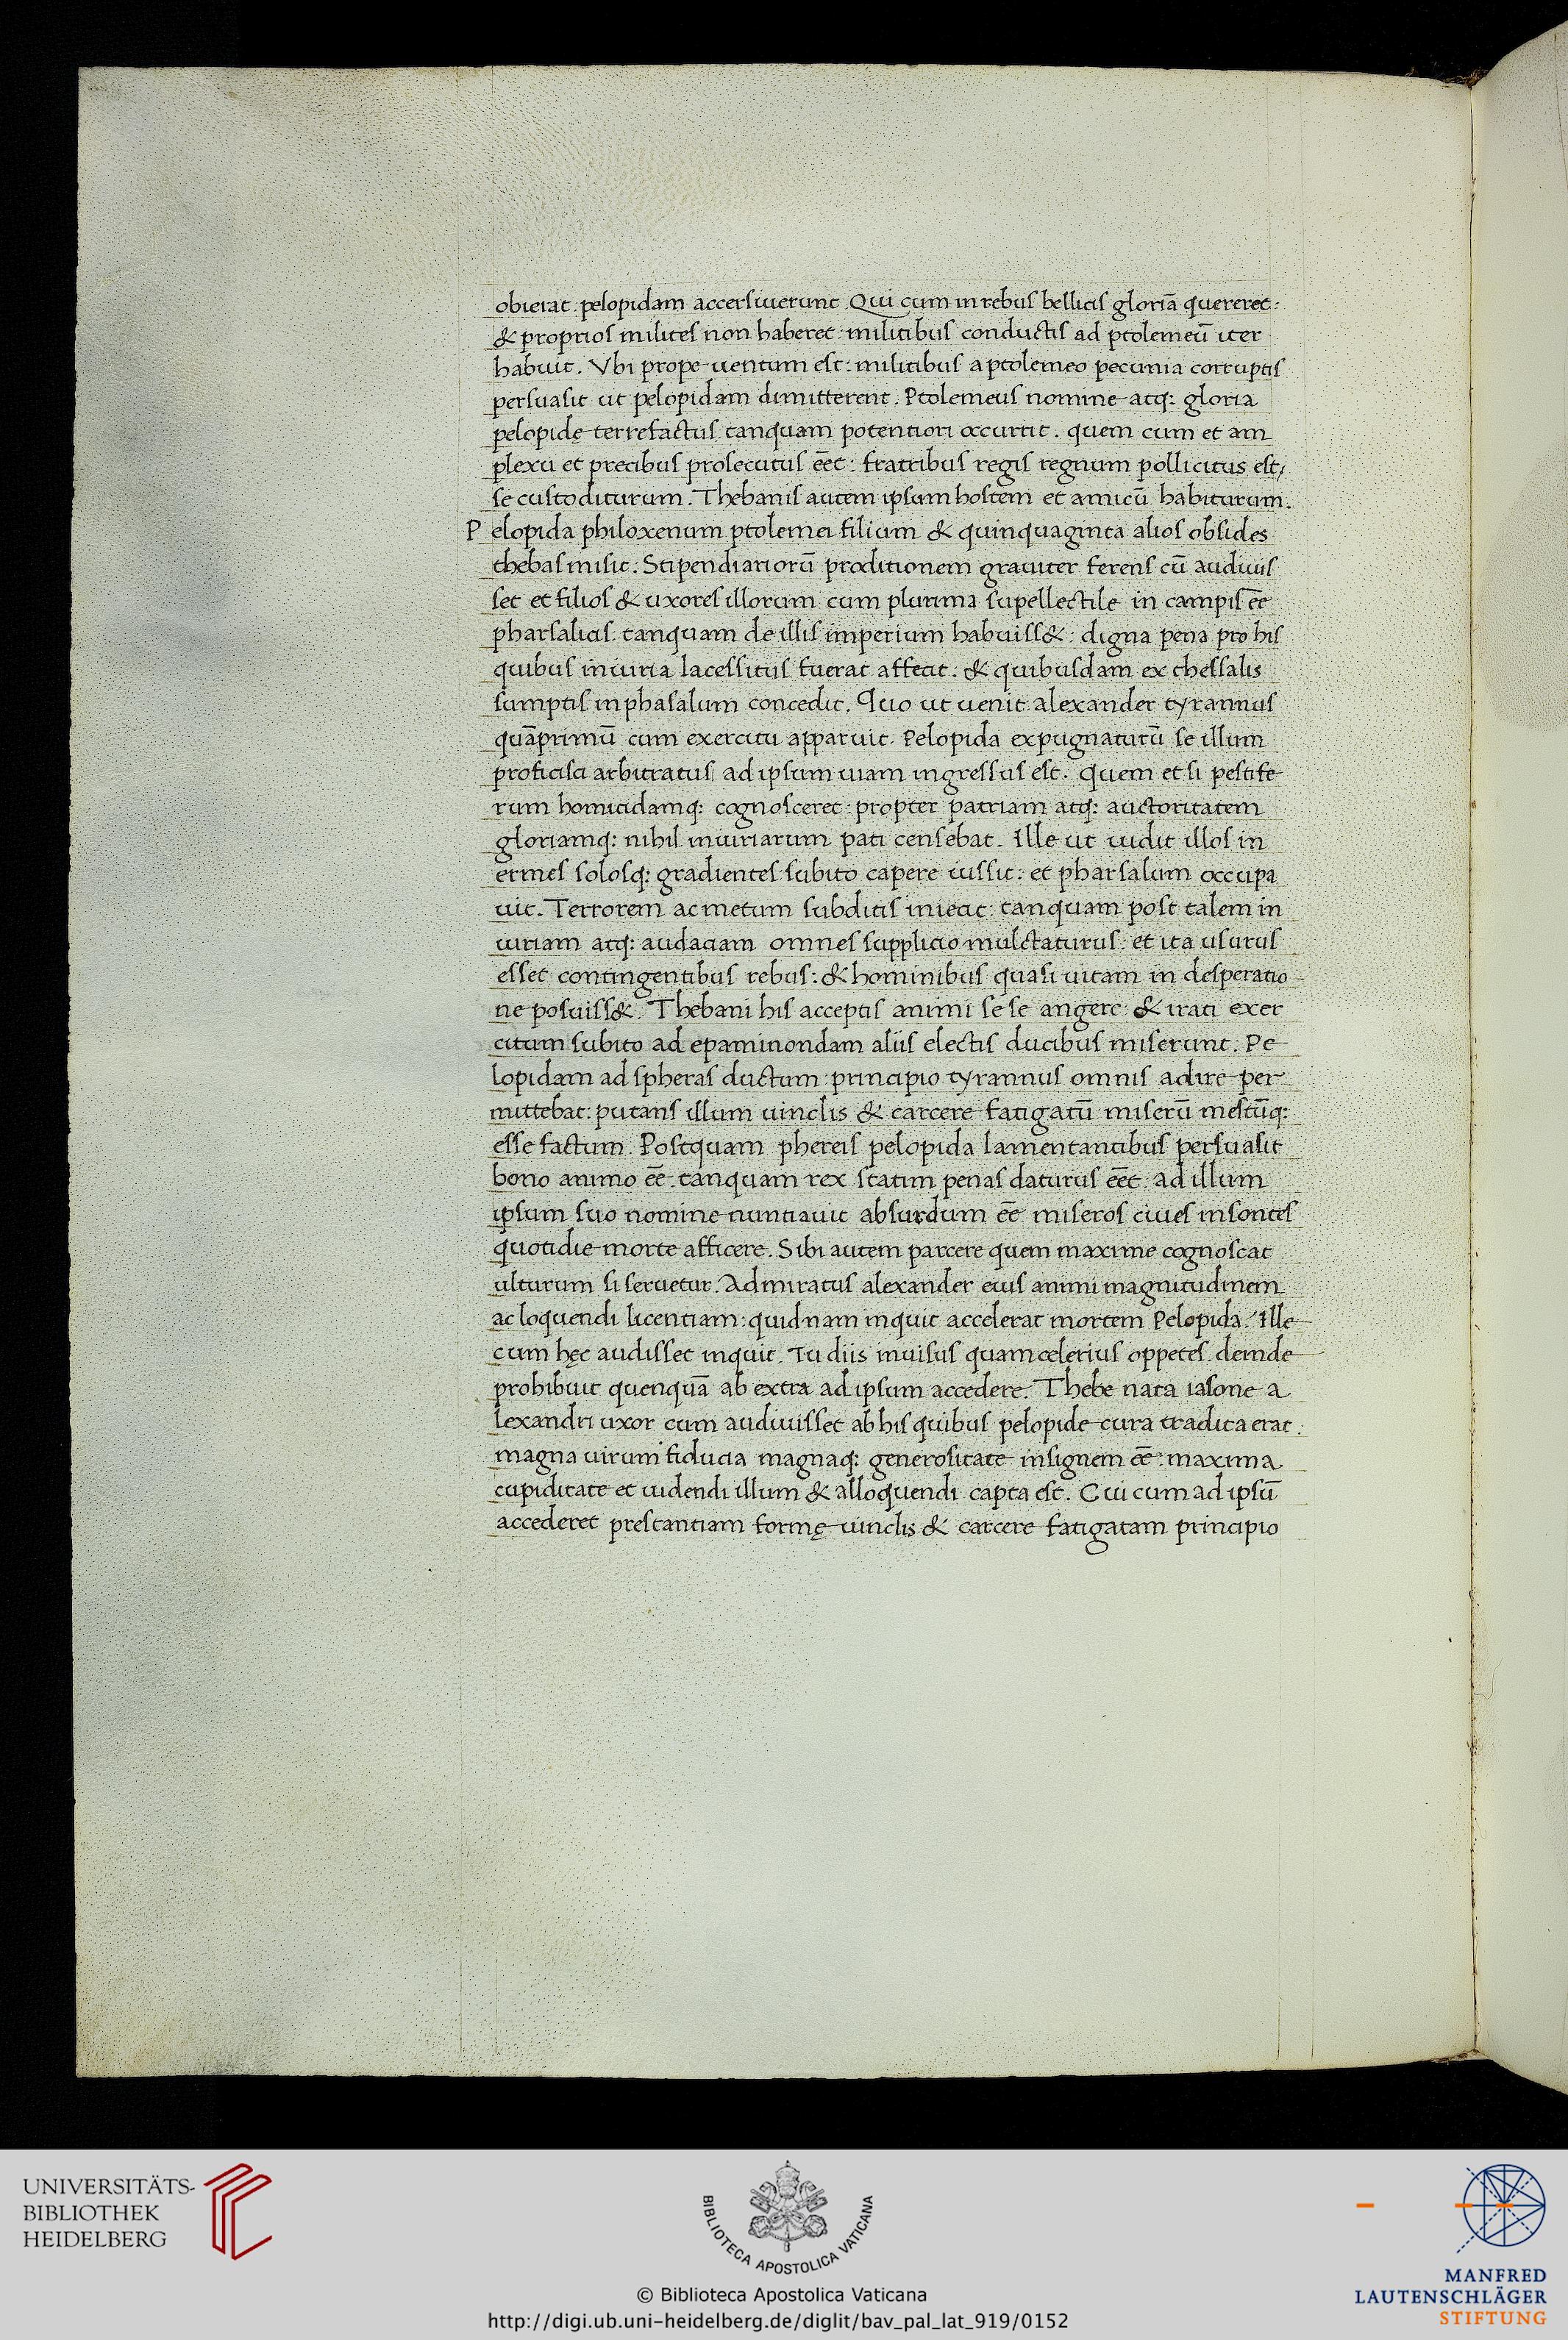 obierat. pelopidam accersiuerunt. Qui cum in rebus bellicis gloriā quereret:
& proprios milites non haberet: militibus conductis ad ptolemeū iter
habuit. Vbi prope uentum est: militibus a ptolemeo pecunia corruptis
persuasit ut pelopidam dimitterent. Ptolemeus nomine atq: gloria
pelopidę terrefactus tanquam potentiori occurrit. quem cum et am
plexu et precibus prosecutus eēt: fratribus regis regnum pollicitus est,
se custoditurum. Thebanis autem ipsum hostem et amicū habiturum.
Pelopida philoxenum ptolemei filium & quinquaginta alios obsides
thebas misit. Stipendiariorū proditionem grauiter ferens cū audiuis
set et filios & uxores illorum cum plurima supellectile in campis eē
pharsalicis. tanquam de illis imperium habuiss&: digna pena pro his
quibus iniuria lacessitus fuerat affecit: & quibusdam ex thessalis
sumptis in phasalum concedit. Quo ut uenit alexander tyrannus
quāprimū cum exercitu apparuit. Pelopida expugnaturū se illum
proficisci arbitratus, ad ipsum uiam ingressus est. quem et si pestife
rum homicidamq: cognosceret: propter patriam atq: auctoritatem
gloriamq: nihil iniuriarum pati censebat. Ille ut uidit illos in
ermes solosq: gradientes subito capere iussit: et pharsalum occupa
uit. Terrorem ac metum subditis iniecit: tanquam post talem in
iuriam atq: audaciam omnes supplicio mulctaturus: et ita usurus
esset contingentibus rebus: & hominibus quasi uitam in desperatio
ne posuiss&. Thebani his acceptis animi se se angere & irati exer
citum subito ad epaminondam aliis electis ducibus miserunt. Pe
lopidam ad spheras ductum principio tyrannus omnis adire per
mittebat: putans illum uinclis & carcere fatigatū miserū mestūq:
esse factum. Postquam phereis pelopida lamentantibus persuasit
bono animo eē. tanquam rex statim penas daturus eēt: ad illum
ipsum suo nomine nuntiauit absurdum eē miseros ciues insontes
quotidie morte afficere. Sibi autem parcere quem maxime cognoscat
ulturum si seruetur. Admiratus alexander eius animi magnitudinem
ac loquendi licentiam: quidnam inquit accelerat mortem Pelopida. Ille
cum hęc audisset inquit. Tu diis inuisus quam celerius oppetes. deinde
prohibuit quenquā ab extra ad ipsum accedere. Thebe nata iasone a
lexandri uxor cum audiuisset ab his quibus pelopide cura tradita erat.
magna uirum fiducia magnaq: generositate insignem eē: maxima
cupiditate et uidendi illum & alloquendi capta est. Cui cum ad ipsū
accederet prestantiam formę uinclis & carcere fatigatam principio
UNIVERSITÄTS-
BIBLIOTHEK
HEIDELBERG
BIBLIOTECA APOSTOLICA VATICANA
© Biblioteca Apostolica Vaticana
http://digi.ub.uni-heidelberg.de/diglit/bav_pal_lat_919/0152
MANFRED
LAUTENSCHLÄGER
STIFTUNG